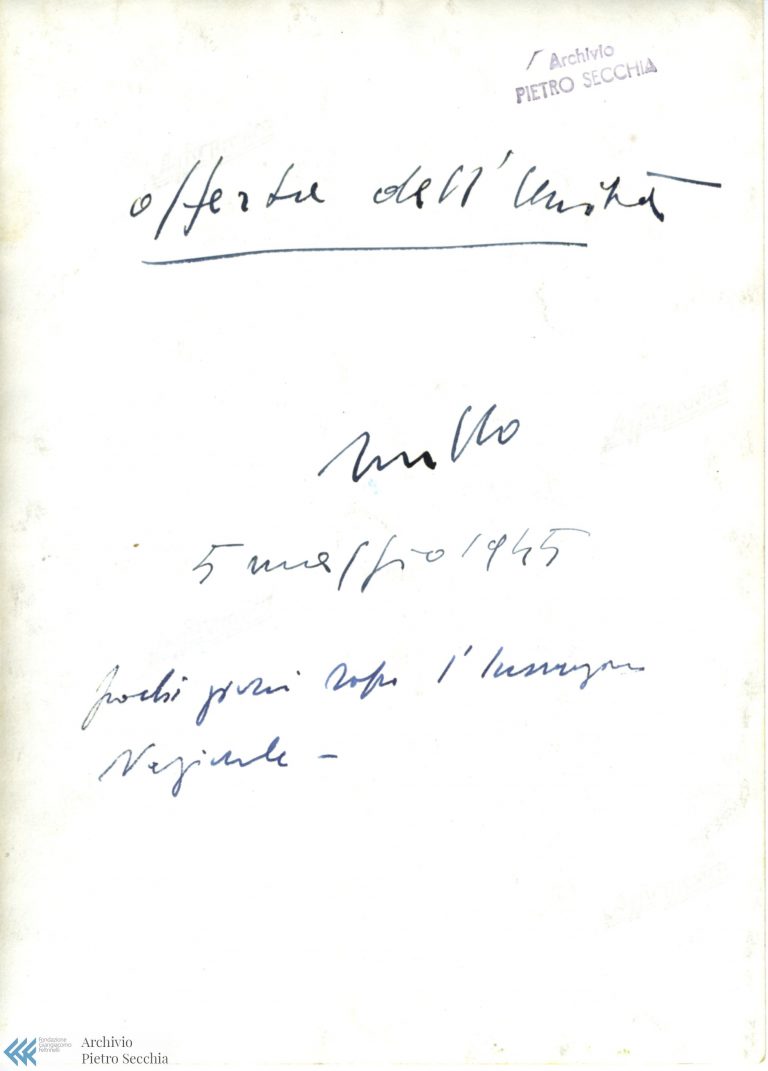 Archivio
PIETRO SECCHIA
offerta dell'Unità
5 maggio 1945
pochi giorni dopo l'Insurrezione
Nazionale -
fondazione
Giangiacomo
Feltrinelli
Archivio
Pietro Secchia